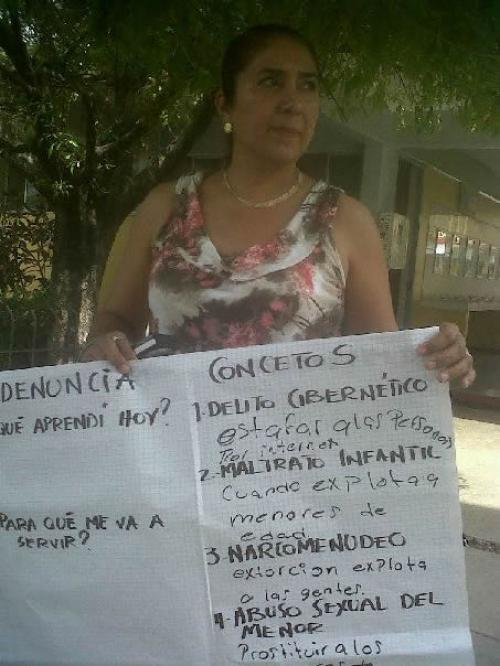 DENUNCIA
QUÉ APRENDÍ HOY?
PARA QUÉ ME VA A
SERVIR?
CONCETOS
1-DELITO CIBERNÉTICO
estafar a las Personas
Por internet
2-MALTRATO INFANTIL
Cuando explota a
menores de
edad
3-NARCOMENUDEO
extorcion explota
a las gentes.
4-ABUSO SEXUAL DEL
MENOR
Prostituir a los